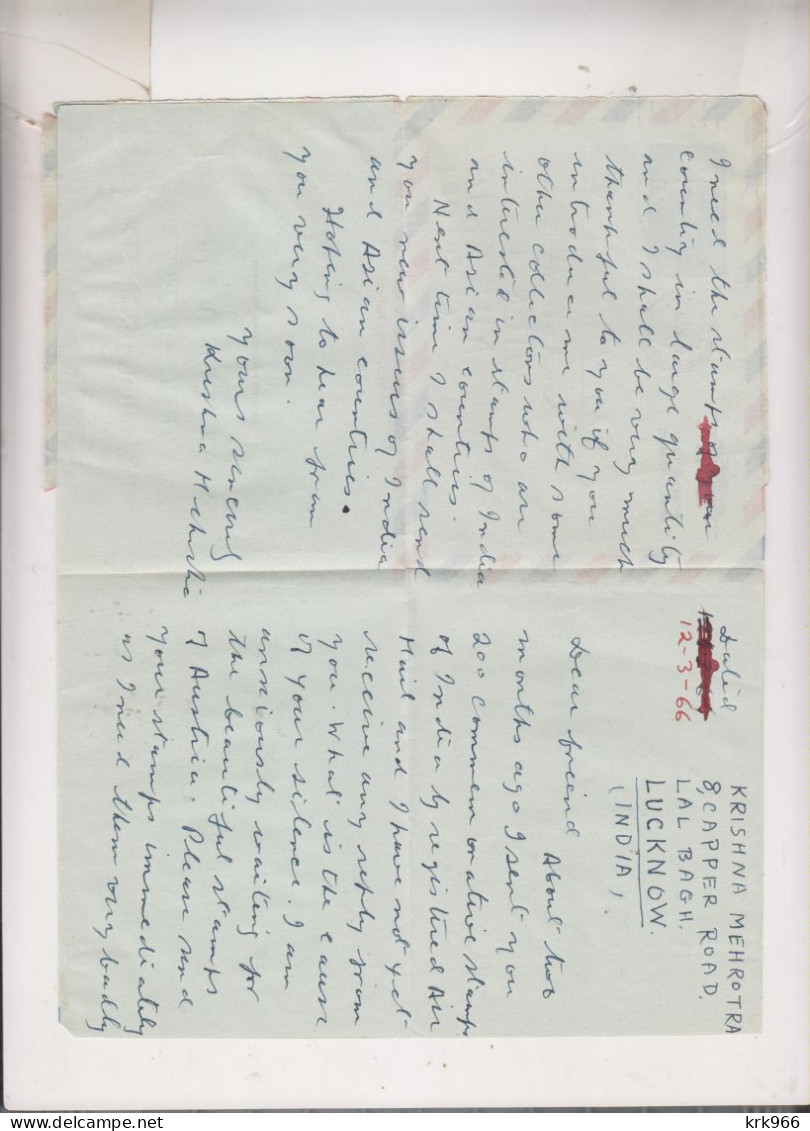 KRISHNA MEHROTRA
8, CAPPER ROAD.
LAL BAGH.
LUCKNOW.
(INDIA)
Dated
12-3-66
Dear friend
About two
months ago I sent you
200 commemorative stamps
of India by registered Air
Mail and I have not yet
receive any reply from
you. What is the cause
of your silence. I am
anxiously waiting for
the beautiful stamps
of Austria. Please send
your stamps immediately
as I need them very badly
I need the stamps of your
country in large quantity
and I shall be very much
thankful to you if you
introduce me with some
other collectors who are
interested in stamps of India
and Asian countries.
Next time I shall send
you new issues of India
and Asian countries.
Hoping to hear from
you very soon.
yours sincerely
Krishna Mehrotra
delcampe.net
krk966